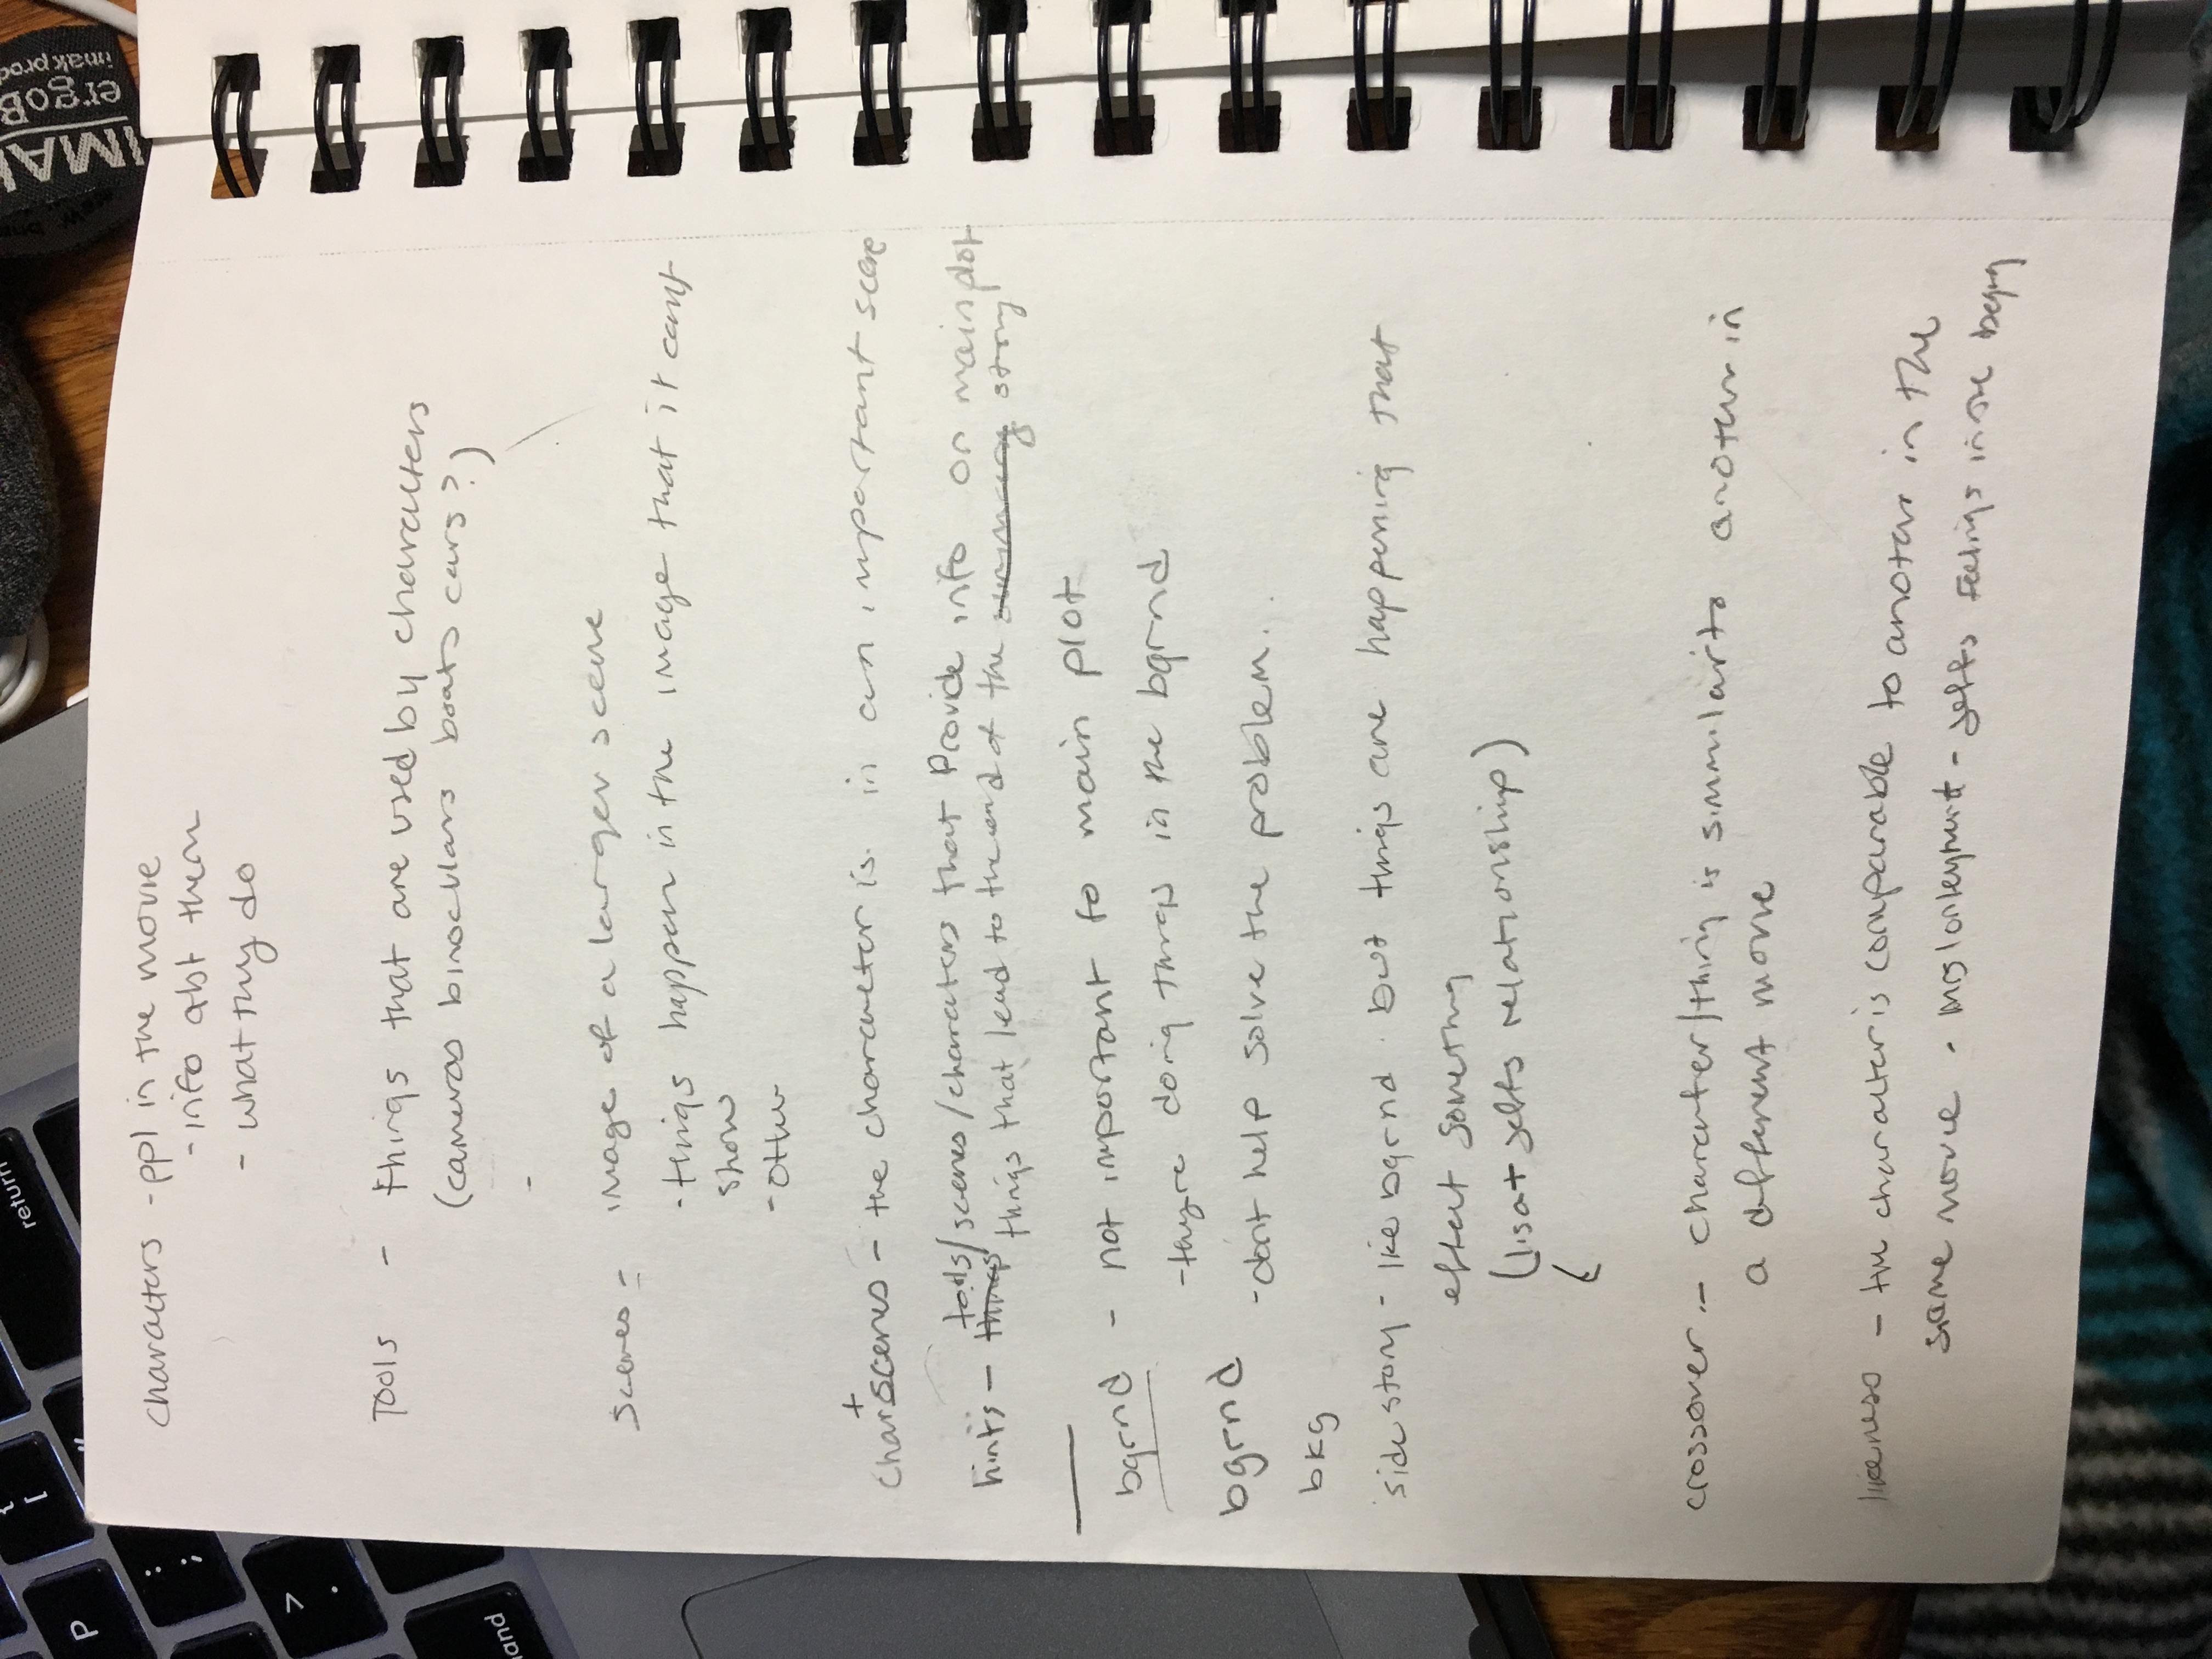 P
{
[
"
return
:
;
>
.
and
IMAK
ergoB
imak prod
characters - ppl in the movie
- info abt them
- what they do
Tools - things that are used by characters
(cameras binocklars boats cars?)
-
scenes - image of a larger scene
- things happen in the image that it cant
show
- other
+
charscenes - the character is in an important scene
tools/scenes/characters that Provide info on main plot
hints - things things that lead to the end of the summary story
bgrnd - not important to main plot
- theyre doing things in the bgrnd
bgrnd
- dont help solve the problem.
bkg
side story - like bgrnd but things are happening that
effect something
(lisa + jeffs relationship)
(
crossover - character/thing is simmilar to another in
a different movie
likeness - the character is comparable to another in the
same movie - mrs lonleyheart - jeffs feelings in the